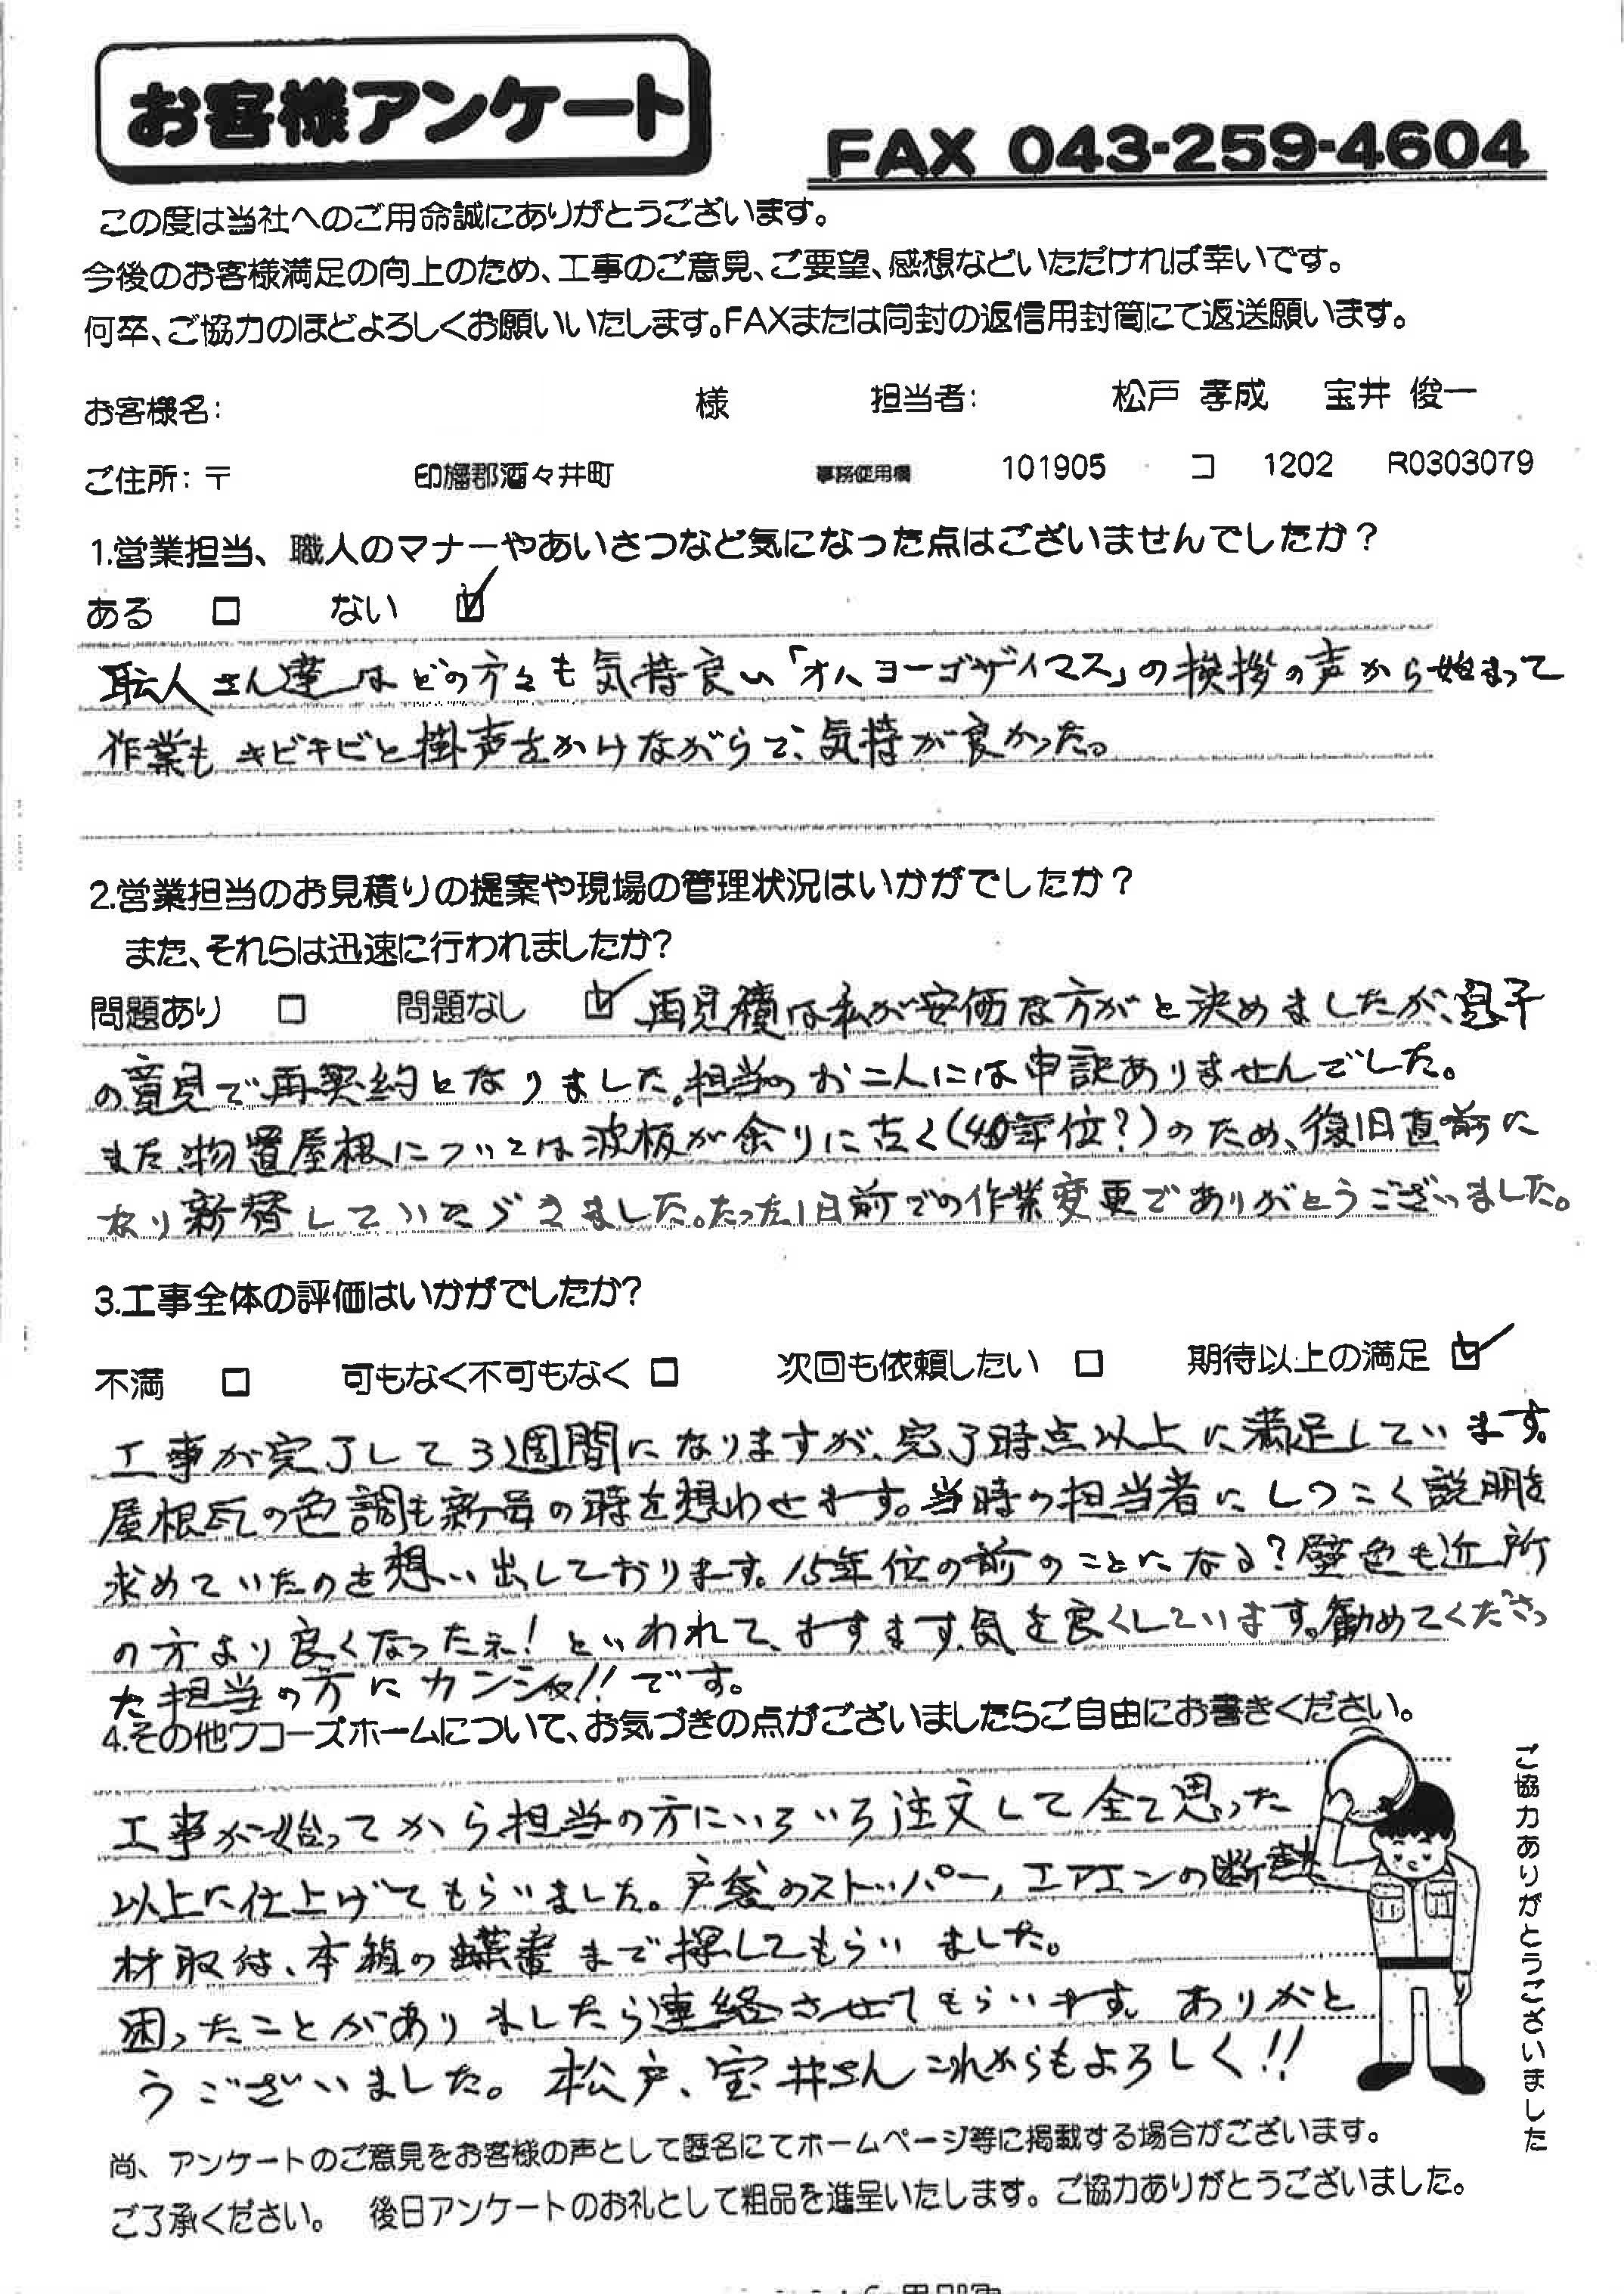 お客様アンケート
FAX 043-259-4604
この度は当社へのご用命誠にありがとうございます。
今後のお客様満足の向上のため、工事のご意見、ご要望、感想などいただければ幸いです。
何卒、ご協力のほどよろしくお願いいたします。FAXまたは同封の返信用封筒にて返送願います。
お客様名: 様 担当者: 松戸 孝成 宝井 俊一
ご住所:〒 印旛郡酒々井町 事務使用欄 101905 コ 1202 R0303079
1.営業担当、職人のマナーやあいさつなど気になった点はございませんでしたか?
ある □ ない ☑
職人さん達はどの方々も気持良い「オハヨーゴザイマス」の挨拶の声から始まって
作業もキビキビと掛声をかけながらで、気持が良かった。
2.営業担当のお見積りの提案や現場の管理状況はいかがでしたか?
また、それらは迅速に行われましたか?
問題あり □ 問題なし ☑ 再見積は私が安価な方がと決めましたが、息子
の意見で再契約となりました。担当のお二人には申訳ありませんでした。
また、物置屋根については波板が余りに古く(40年位?)のため、復旧直前に
なり新替していただきました。たった1日前での作業変更でありがとうございました。
3.工事全体の評価はいかがでしたか?
不満 □ 可もなく不可もなく □ 次回も依頼したい □ 期待以上の満足 ☑
工事が完了して3週間になりますが、完了時点以上に満足しています。
屋根瓦の色調も新品の時を想わせます。当時の担当者にしつこく説明を
求めていたのを想い出しております。15年位の前のことになる?壁色も近所
の方より良くなったネ!といわれて、ますます気を良くしています。勧めてくださっ
た担当の方にカンシャ!!です。
4.その他ワコーズホームについて、お気づきの点がございましたらご自由にお書きください。
工事が始ってから担当の方にいろいろ注文して全て思った
以上に仕上げてもらいました。戸袋のストッパー,エアエンの断熱
材取付、本箱の蝶番まで探してもらいました。
困ったことがありましたら連絡させてもらいます。ありがと
うございました。松戸、宝井さんこれからもよろしく!!
ご協力ありがとうございました
尚、アンケートのご意見をお客様の声として匿名にてホームページ等に掲載する場合がございます。
ご了承ください。 後日アンケートのお礼として粗品を進呈いたします。ご協力ありがとうございました。